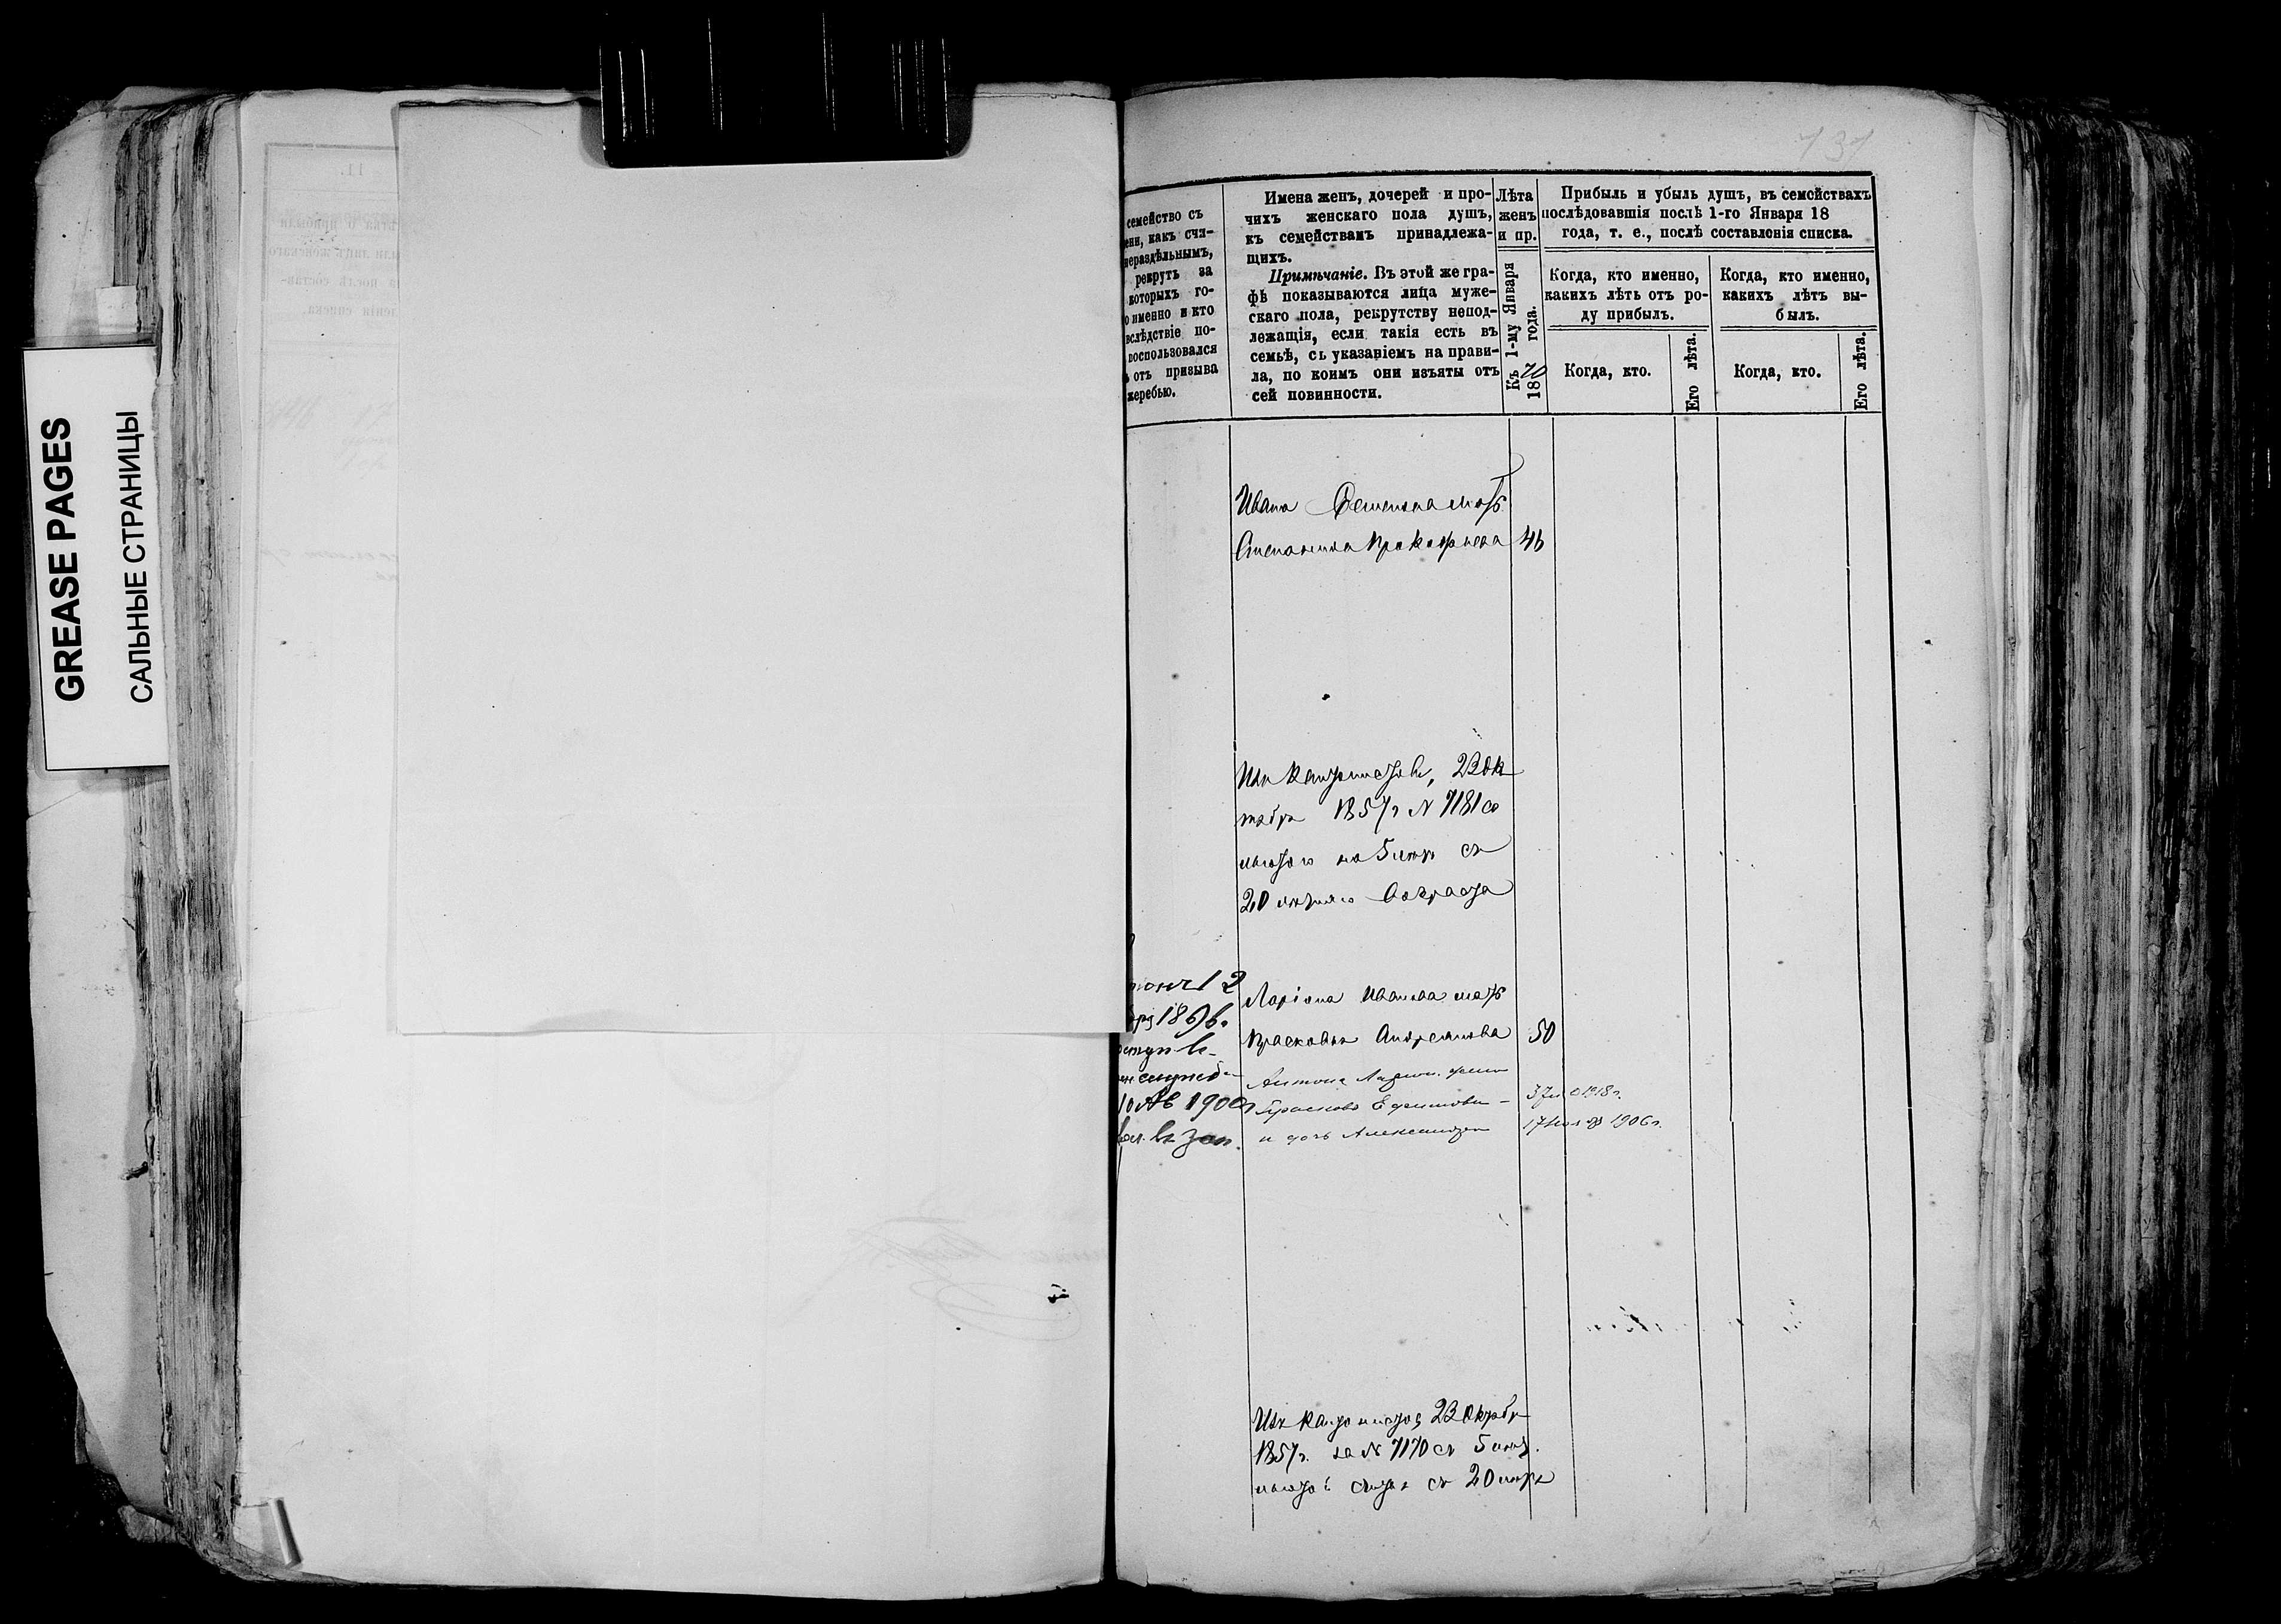 GREASE PAGES
САЛЬНЫЕ СТРАНИЦЫ
11.
737
семейство съ
какъ счи-
нераздѣльнымъ,
рекрутъ за
которыхъ го-
именно и кто
вслѣдствіе по-
воспользовался
отъ призыва
жеребью.
Имена женъ, дочерей и про-
чихъ женскаго пола душъ,
къ семействамъ принадлежа-
щихъ.
Примѣчаніе. Въ этой же гра-
фѣ показываются лица муже-
скаго пола, рекрутству непод-
лежащія, если такія есть въ
семьѣ, съ указаніемъ на прави-
ла, по коимъ они изъяты отъ
сей повинности.
Лѣта
женъ
и пр.
Къ 1-му Января
1870 года.
Прибыль и убыль душъ, въ семействахъ
послѣдовавшія послѣ 1-го Января 18
года, т. е., послѣ составленія списка.
Когда, кто именно,
какихъ лѣтъ отъ ро-
ду прибылъ.
Когда, кто.
Его лѣта.
Когда, кто именно,
какихъ лѣтъ вы-
былъ.
Когда, кто.
Его лѣта.
Ивана Семенова мать
Степанида Прокофьева 46
Изъ кантонистовъ, 23 Ок
тября 1857г N 7181 со
льготою на 5 лѣтъ съ
20 лѣтняго возраста
12
1896.
10 Ав 1900
въ зап.
Ларіона Иванова мать
Прасковья Андреянова 50
Антона Ларіон. жена
Прасковья Ефимова - 1918г.
и дочь Александра 17 1906г.
Изъ кантонистовъ 23 Октября
1857г. за N 7170 съ 5 лѣт.
льготой съ 20 лѣтъ